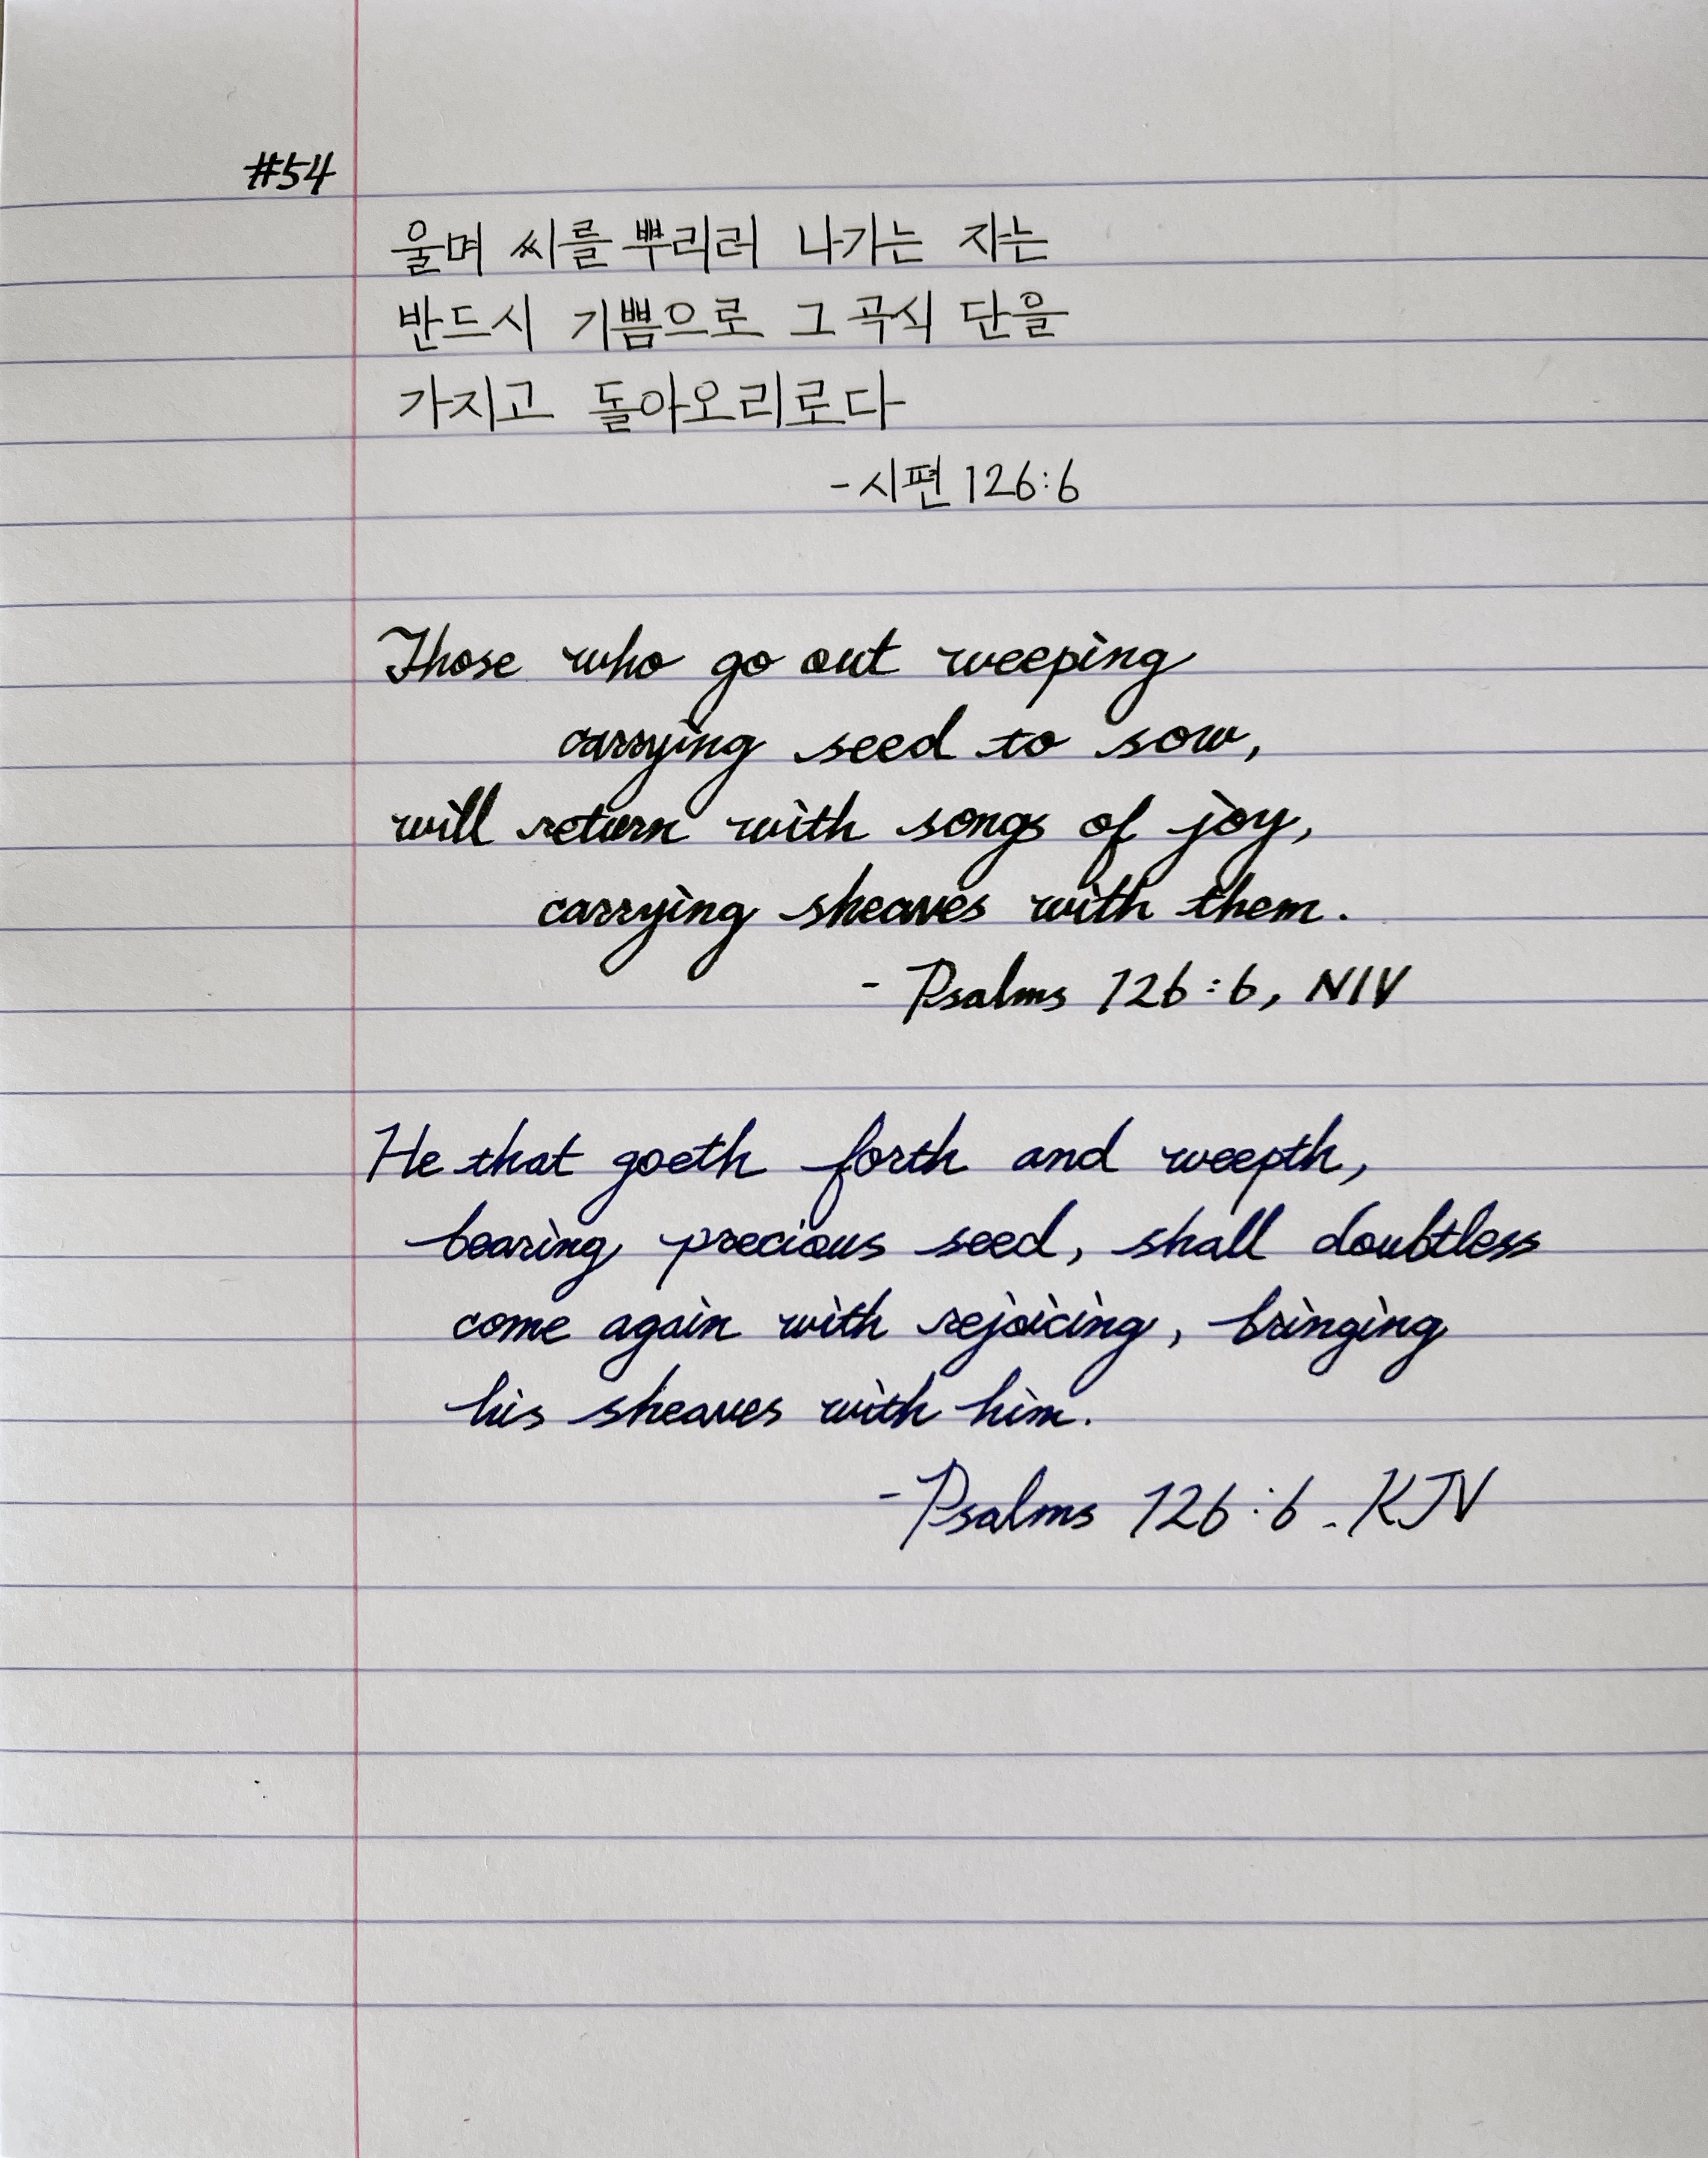 #54
울며 씨를 뿌리러 나가는 자는
반드시 기쁨으로 그 곡식 단을
가지고 돌아오리로다
-시편 126:6
Those who go out weeping
carrying seed to sow,
will return with songs of joy,
carrying sheaves with them.
- Psalms 126:6, NIV
He that goeth forth and weepth,
bearing precious seed, shall doubtless
come again with rejoicing, bringing
his sheaves with him.
- Psalms 126:6 - KJV